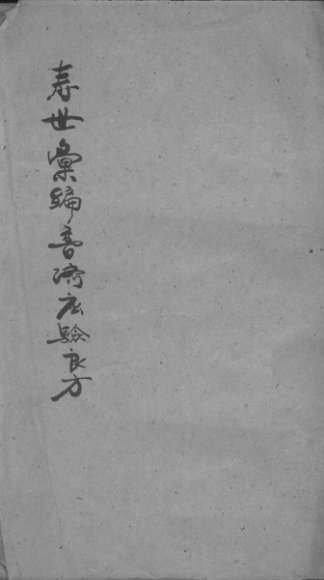 壽世彙編普濟应驗良方